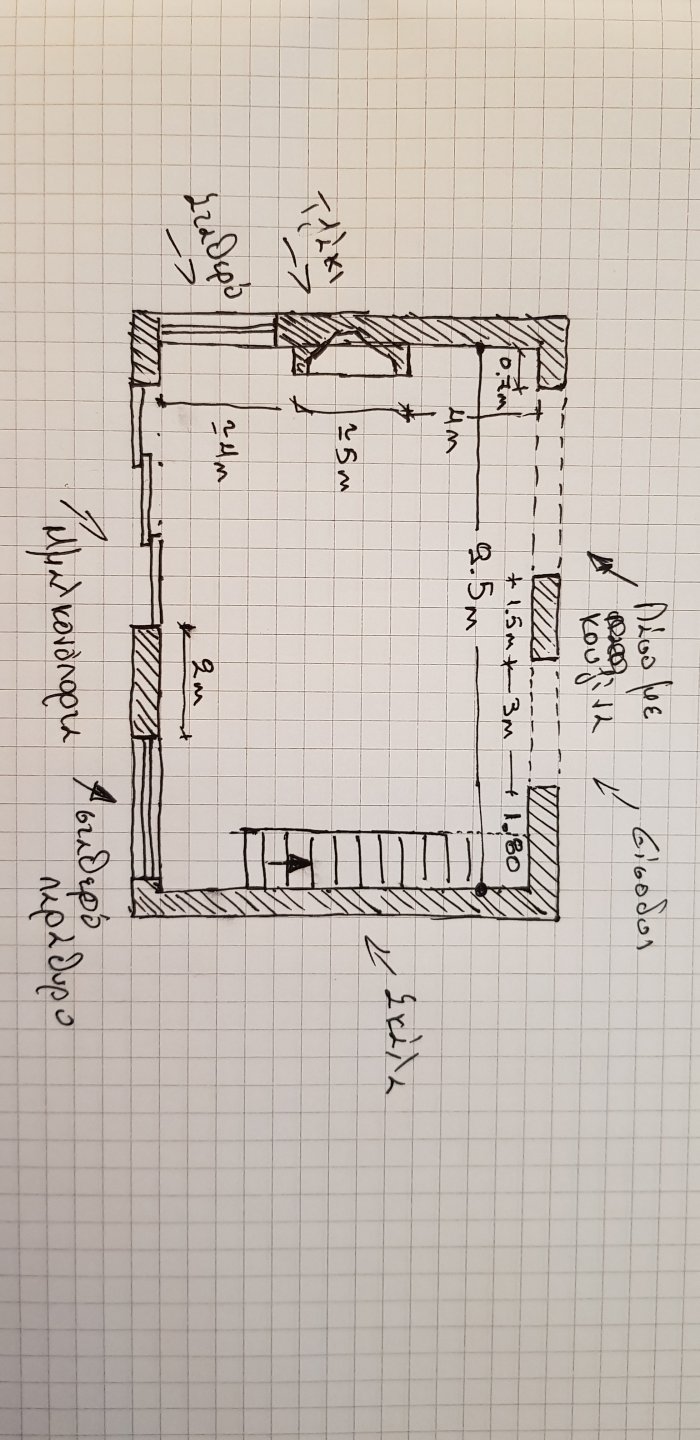 Είσοδος
Πάσο με
κουζίνα
0.7m
1.5m
3m
1,80
9.5m
4m
Σκάλα
≃5m
Τζάκι
≃4m
Σταθερό
2m
σταθερό
παράθυρο
Μπαλκονόπορτα